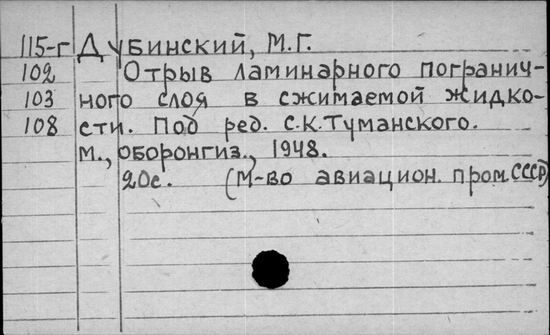 115-г Дубинский, М.Г.
102 Отрыв ламинарного погранич-
103 ного слоя в сжимаемой жидко-
108 сти. Под ред. С.К.Туманского.
М., оборонгиз., 1948.
20с. (М-во авиацион. пром.СССР)